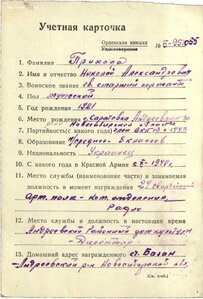 Учетная карточка
Орденская книжка
Удостоверение
№ Б-955055
1. Фамилия Приходa
2. Имя и отчество Николай Александрович
3. Воинское звание гв. старший сержант
4. Пол мужской
5. Год рождения 1921
6. Место рождения с.
Новосибирской
7. Партийность (с какого года) член ВКП/б с 1943
8. Образование Среднее - 8 классов
9. Национальность Украинец
10. С какого года в Красной Армии с 1940г.
11. Место службы (наименование части) и занимаемая
должность в момент награждения Гвардейский
Арт. полк - ком. отделения
Радио
12. Место службы и должность в настоящее время
Андреевский Районный дом культуры
Директор
13. Домашний адрес награжденного ст. Баган
Андреевский р-н Новосибирской обл.
(См. на об.)